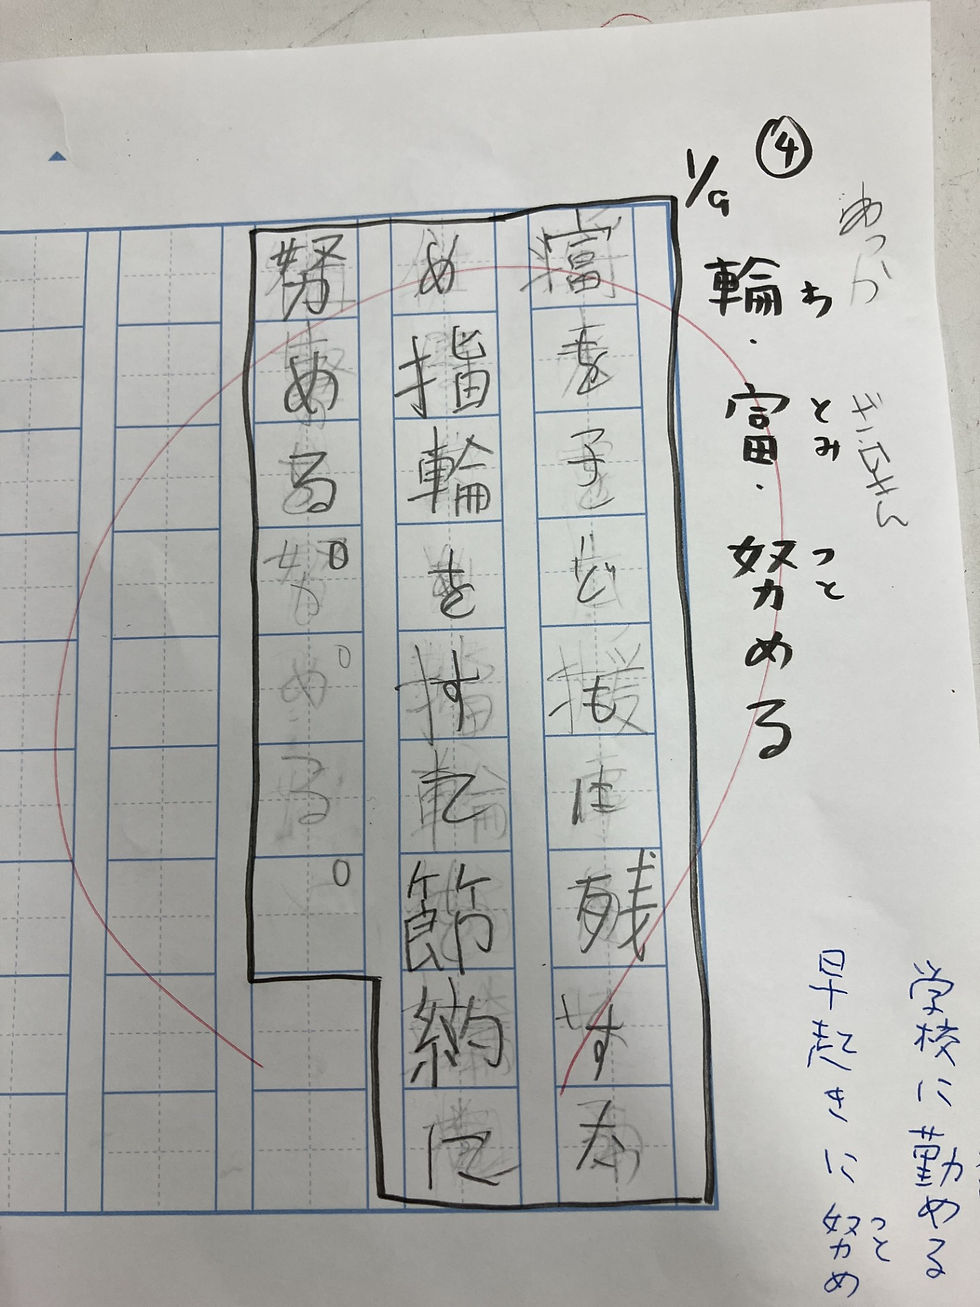 ④
1/9
輪・富・努める
わ とみ つと
富を子ども は残すた
め指輪をすて節約に
努める。
学校に勤める
早起きに努め
つと